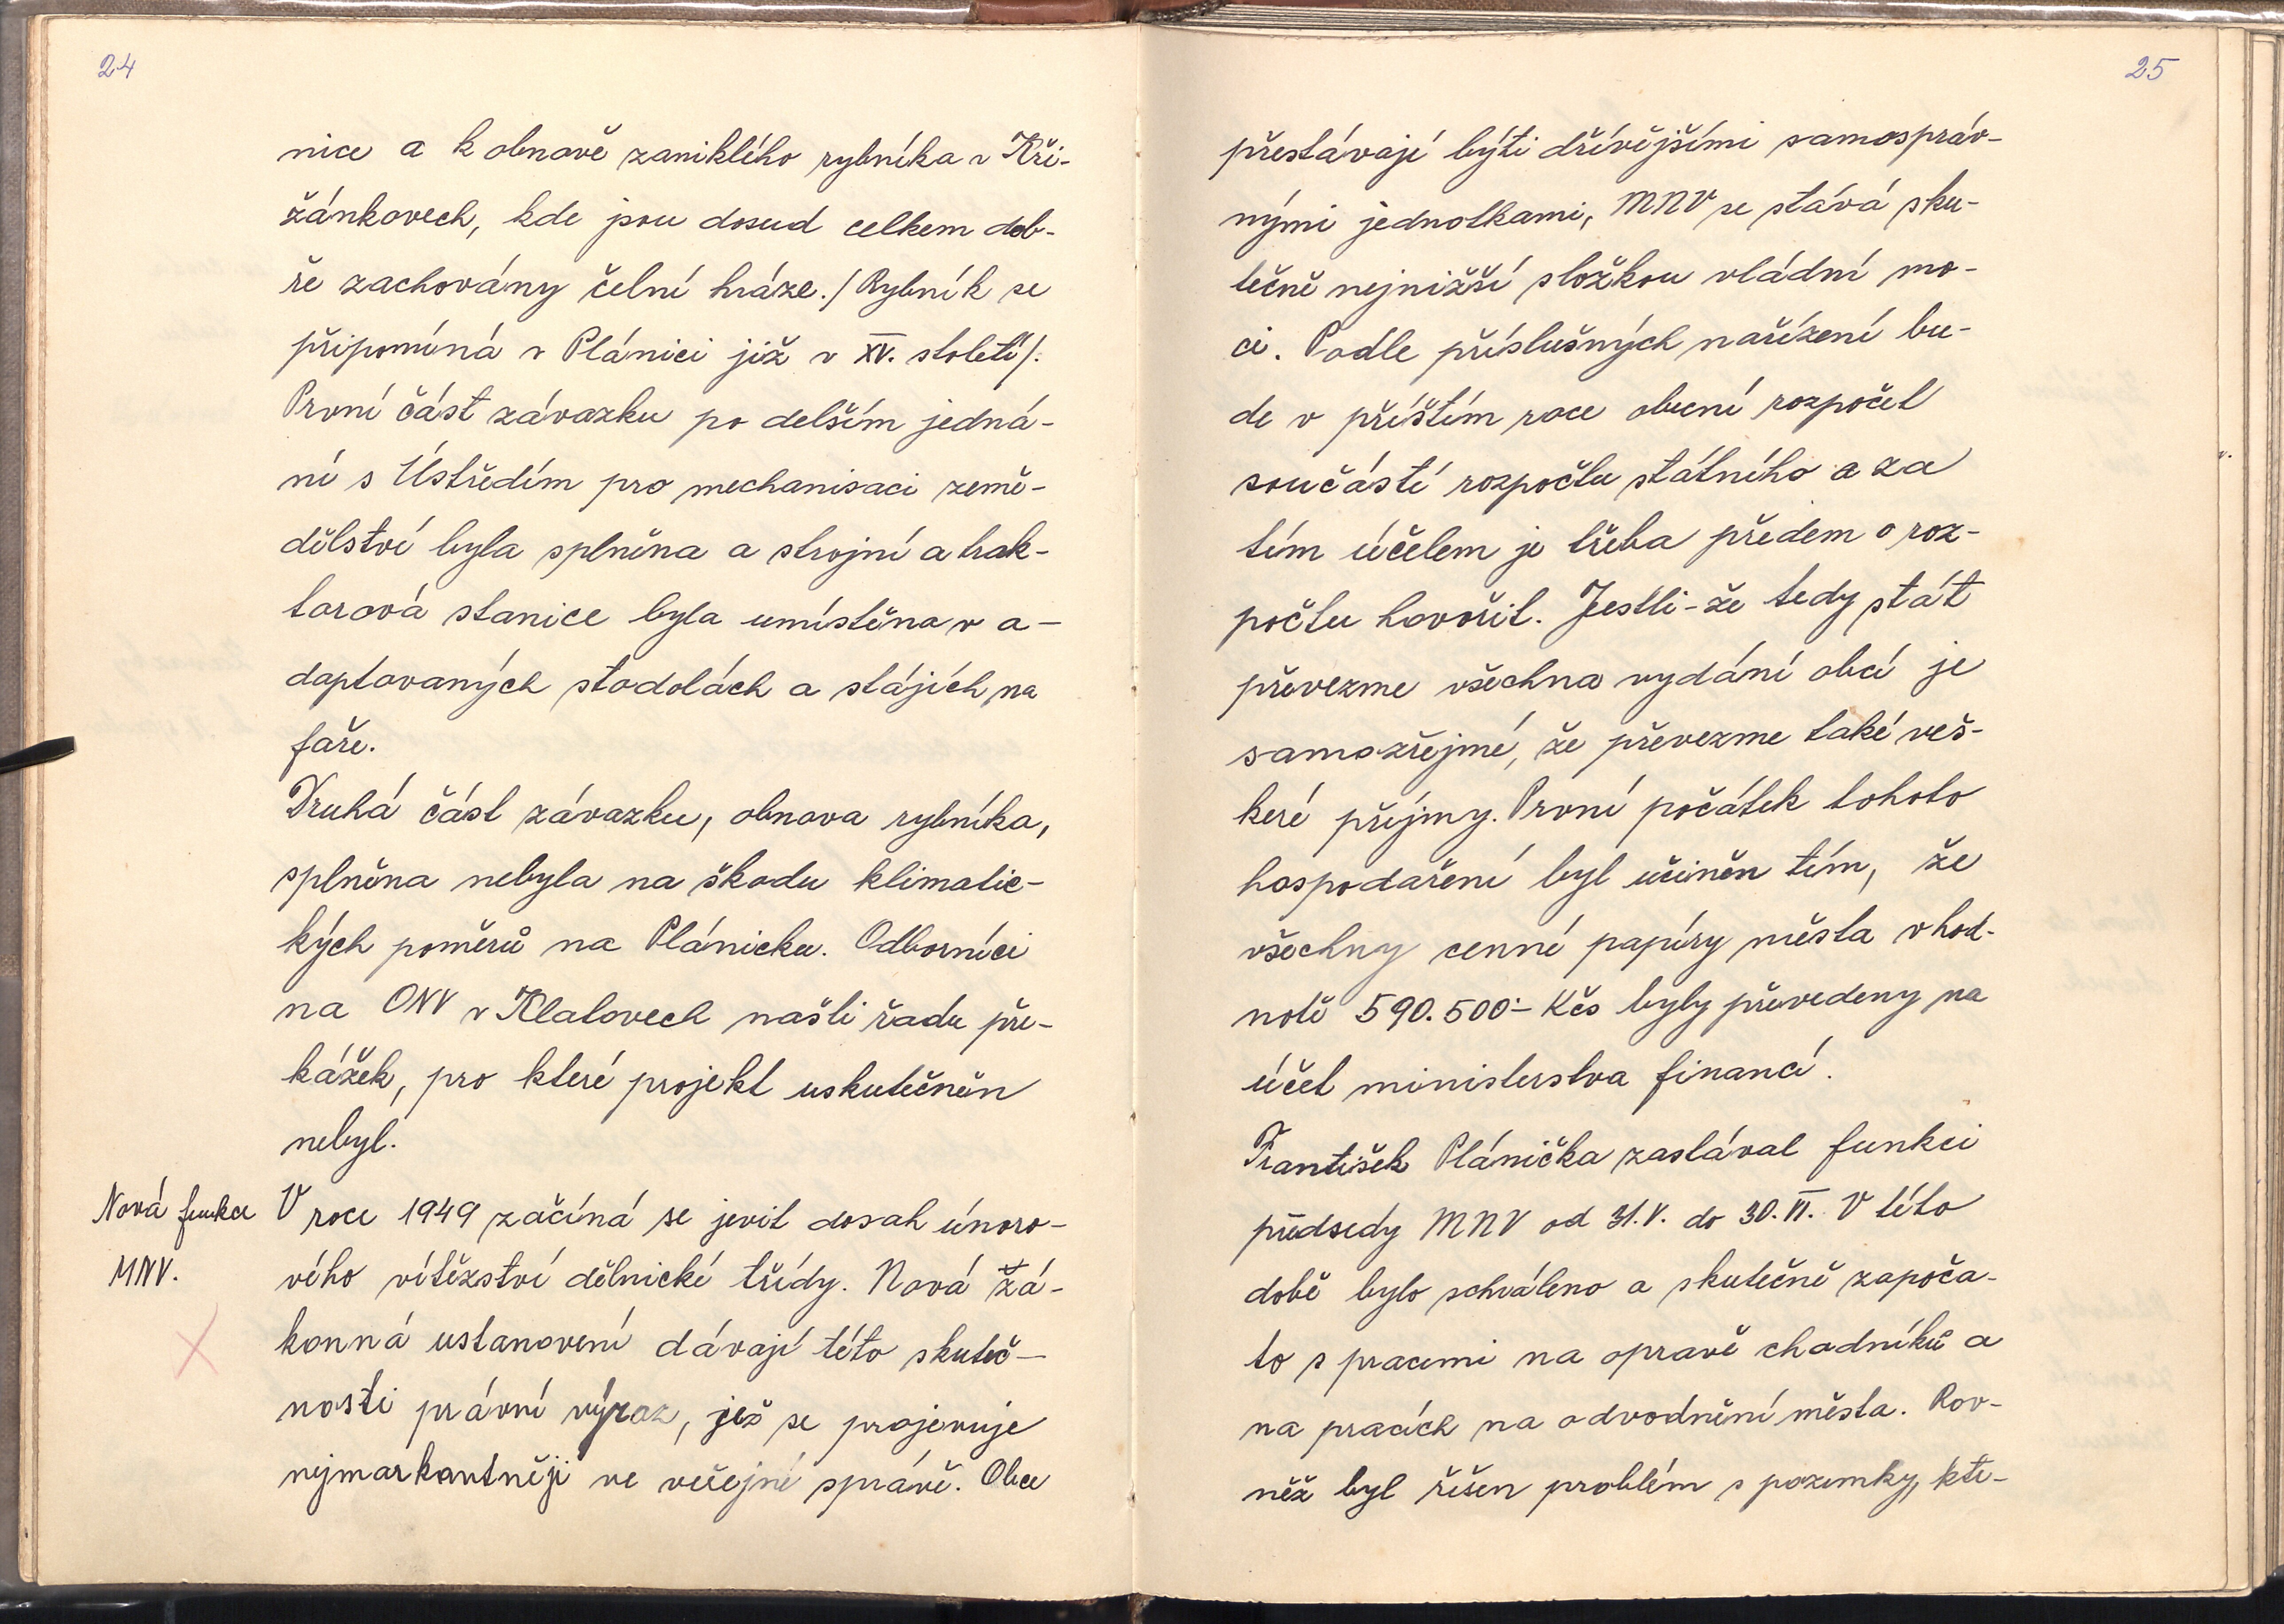 24
nice a k obnově zaniklého rybníka v Kři-
žánkovech, kde jsou dosud celkem dob-
ře zachovány čelní hráze./Rybník se
připomíná v Plánici již v XV. století/.
První část závazku po delším jedná-
ní s Ústředím pro mechanisaci země-
dělství byla splněna a strojní a trak-
torová stanice byla umístěna v a-
daptovaných stodolách a stájích na
faře.
Druhá část závazku, obnova rybníka,
splněna nebyla na škodu klimatic-
kých poměrů na Plánicku. Odborníci
na ONV v Klatovech našli řadu pře-
kážek, pro které projekt uskutečněn
nebyl.
Nová funkce
MNV.
V roce 1949 začíná se jevit dosah únoro-
vého vítězství dělnické třídy. Nová zá-
konná ustanovení dávají této skuteč-
nosti právní výraz, jež se projevuje
nejmarkantněji ve veřejné správě. Obce
25
přestávají býti dřívějšími samospráv-
nými jednotkami, MNV se stává sku-
tečně nejnižší složkou vládní mo-
ci. Podle příslušných nařízení bu-
de v příštím roce obecní rozpočet
součástí rozpočtu státního a za
tím účelem je třeba předem o roz-
počtu hovořit. Jestli-že tedy stát
převezme všechna vydání obcí je
samozřejmé, že převezme také veš-
keré příjmy. První počátek tohoto
hospodaření byl učiněn tím, že
všechny cenné papíry města v hod-
notě 590.500.- Kčs byly převedeny na
účet ministerstva financí.
František Plánička zastával funkci
předsedy MNV od 31.V. do 30.VI. V této
době bylo schváleno a skutečně započa-
to s pracemi na opravě chodníků a
na pracích na odvodnění města. Rov-
něž byl řešen problém s pozemky, kte-